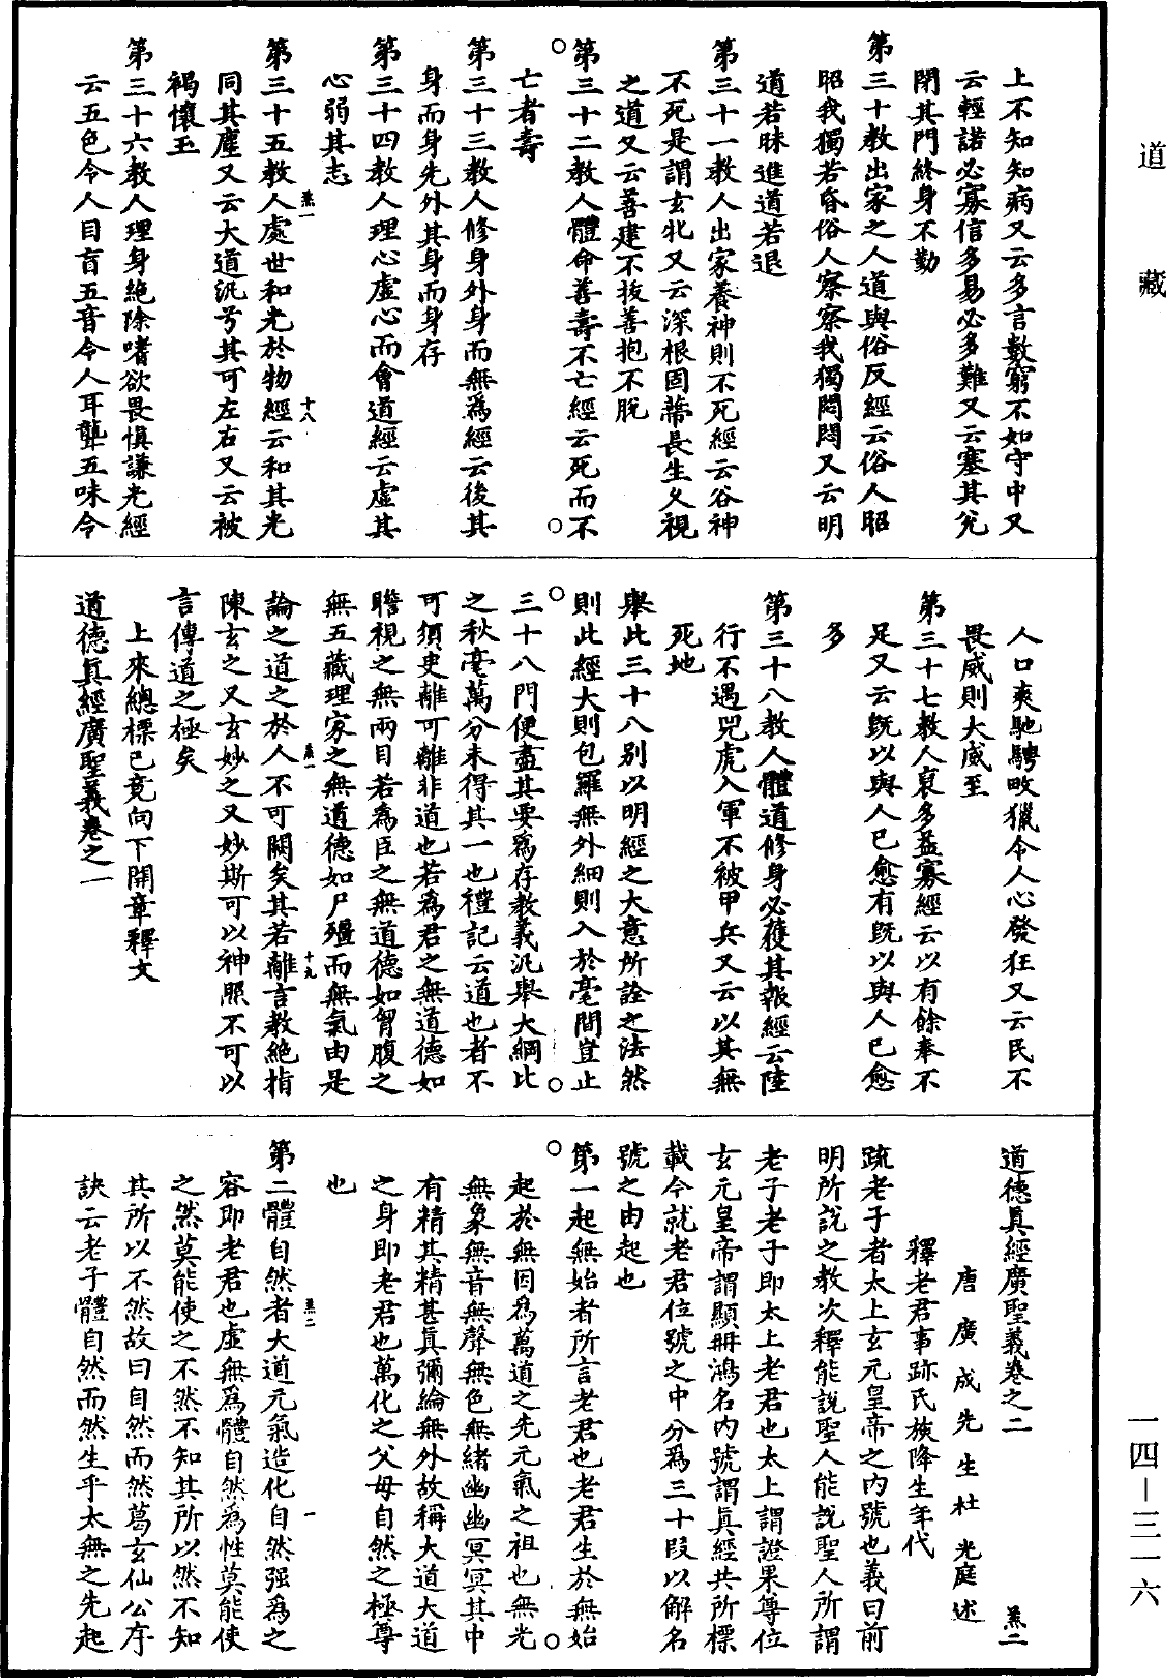 道藏
上不知知病又云多言數窮不如守中又
云輕諾必寡信多易必多難又云塞其兌
閉其門終身不勤
第三十教出家之人道與俗反經云俗人昭
昭我獨若昏俗人察察我獨悶悶又云明
道若昧進道若退
第三十一教人出家養神則不死經云谷神
不死是謂玄牝又云深根固蔕長生久視
之道又云善建不拔善抱不脫
第三十二教人體命善壽不亡經云死而不
亡者壽
第三十三教人修身外身而無爲經云後其
身而身先外其身而身存
第三十四教人理心虛心而會道經云虛其
心弱其志
第三十五教人處世和光於物經云和其光
同其塵又云大道汎兮其可左右又云被
褐懷玉
第三十六教人理身絶除嗜欲畏慎謙光經
云五色令人目盲五音令人耳聾五味令
人口爽馳騁畋獵令人心發狂又云民不
畏威則大威至
第三十七教人裒多益寡經云以有餘奉不
足又云旣以與人已愈有旣以與人已愈
多
第三十八教人體道修身必獲其報經云陸
行不遇兕虎入軍不被甲兵又云以其無
死地
舉此三十八別以明經之大意所詮之法然
則此經大則包羅無外細則入於毫間豈止
三十八門便盡其要爲存教義汎舉大綱比
之秋毫萬分未得其一也禮記云道也者不
可須臾離可離非道也若爲君之無道德如
瞻視之無兩目若爲臣之無道德如胷腹之
無五藏理家之無道德如尸殭而無氣由是
論之道之於人不可闕矣其若離言教絶指
陳玄之又玄妙之又妙斯可以神照不可以
言傳道之極矣
上來總標已竟向下開章釋文
道德眞經廣聖義卷之一
道德眞經廣聖義卷之二 羔二
唐廣成先生杜光庭述
釋老君事跡氏族降生年代
疏老子者太上玄元皇帝之内號也義曰前
明所說之教次釋能說聖人能說聖人所謂
老子老子即太上老君也太上謂證果尊位
玄元皇帝謂顯冊鴻名内號謂眞經共所標
載今就老君位號之中分爲三十段以解名
號之由起也
第一起無始者所言老君也老君生於無始
起於無因爲萬道之先元氣之祖也無光
無象無音無聲無色無緒幽幽冥冥其中
有精其精甚眞彌綸無外故稱大道大道
之身即老君也萬化之父母自然之極尊
也
第二體自然者大道元氣造化自然强爲之
容即老君也虛無爲體自然爲性莫能使
之然莫能使之不然不知其所以然不知
其所以不然故曰自然而然葛玄仙公序
訣云老子體自然而然生乎太無之先起
羔一
十八
羔一
十九
羔二
一
一四—三一六